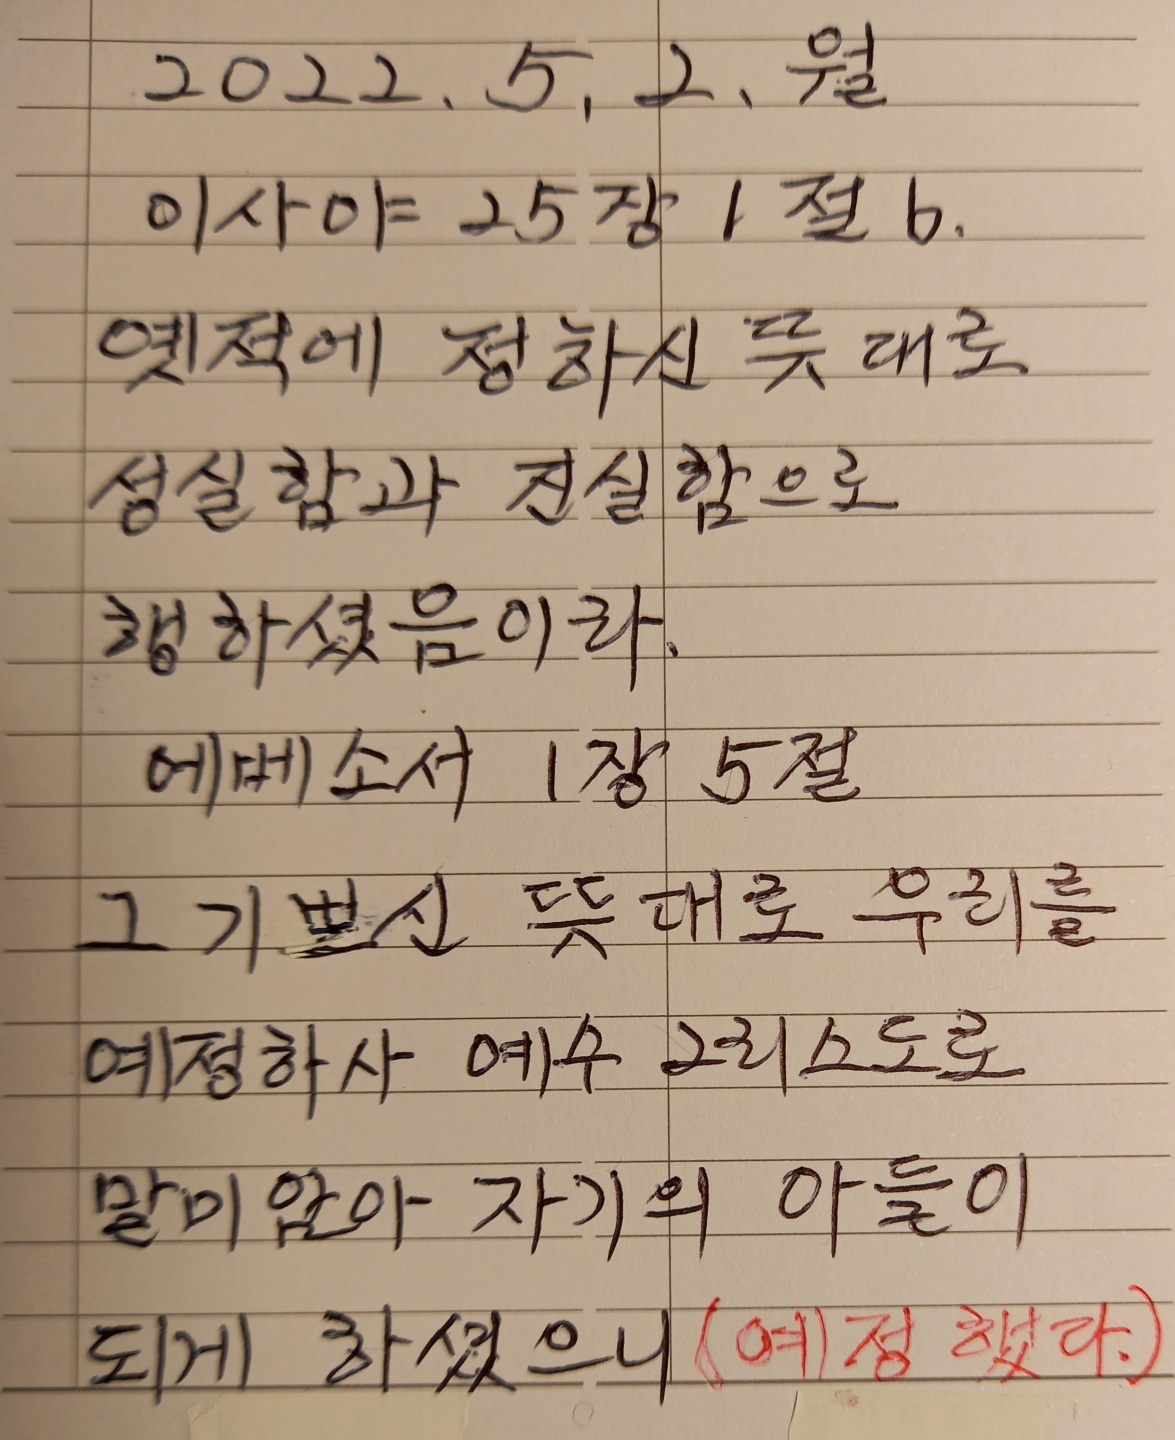 2022. 5, 2. 월
이사야 25장 1절 b.
옛적에 정하신 뜻대로
성실함과 진실함으로
행하셨음이라.
에베소서 1장 5절
그 기쁘신 뜻대로 우리를
예정하사 예수 그리스도로
말미암아 자기의 아들이
되게 하셨으니 (예정했다.)